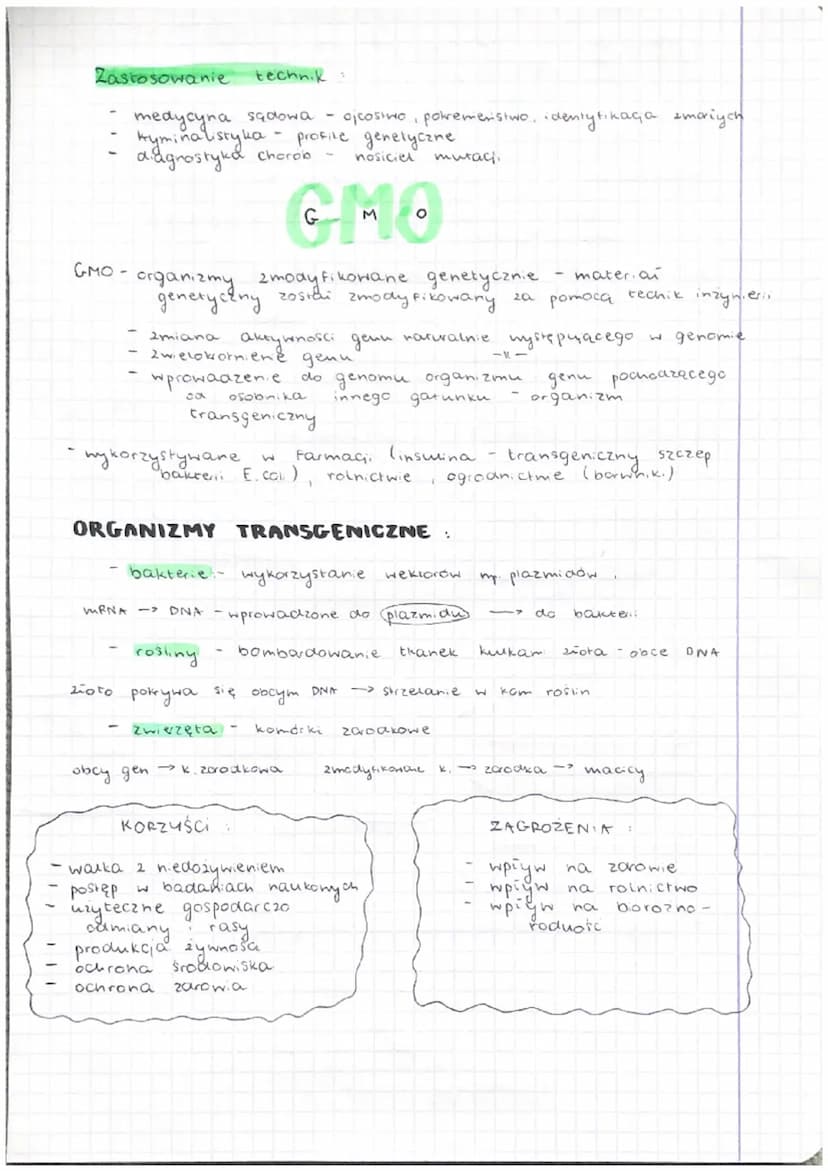 Zastosowanie technik :
- medycyna sądowa - ojcostwo, pokrewieństwo, identyfikacja zmarłych
- kryminalistyka - profile genetyczne
- diagnostyka chorób - nosiciel mutacji
GMO
GMO - organizmy zmodyfikowane genetycznie - materiał
genetyczny został zmodyfikowany za pomocą technik inżynierii
- zmiana aktywności genu naturalnie występującego w genomie
- zwielokornienie genu -||-
- wprowadzenie do genomu organizmu genu pochodzącego
od osobnika innego gatunku - organizm
transgeniczny
- wykorzystywane w farmacji (insulina - transgeniczny szczep
bakterii E.coli), rolnictwie, ogrodnictwie (barwniki)
ORGANIZMY TRANSGENICZNE :
- bakterie - wykorzystanie wektorów np. plazmidów
mRNA -> DNA - wprowadzone do plazmidu -> do bakterii
- rośliny - bombardowanie tkanek kulkami złota - obce DNA
złoto pokrywa się obcym DNA -> strzelanie w kom roślin
- zwierzęta - komórki zarodkowe
obcy gen -> k. zarodkowa zmodyfikowane k. -> zarodka -> macicy
KORZYŚCI :
- walka z niedożywieniem
- postęp w badaniach naukowych
- użyteczne gospodarczo
odmiany i rasy
- produkcja żywności
- ochrona środowiska
- ochrona zdrowia
ZAGROŻENIA :
- wpływ na zdrowie
- wpływ na rolnictwo
- wpływ na bioróżno-
rodność